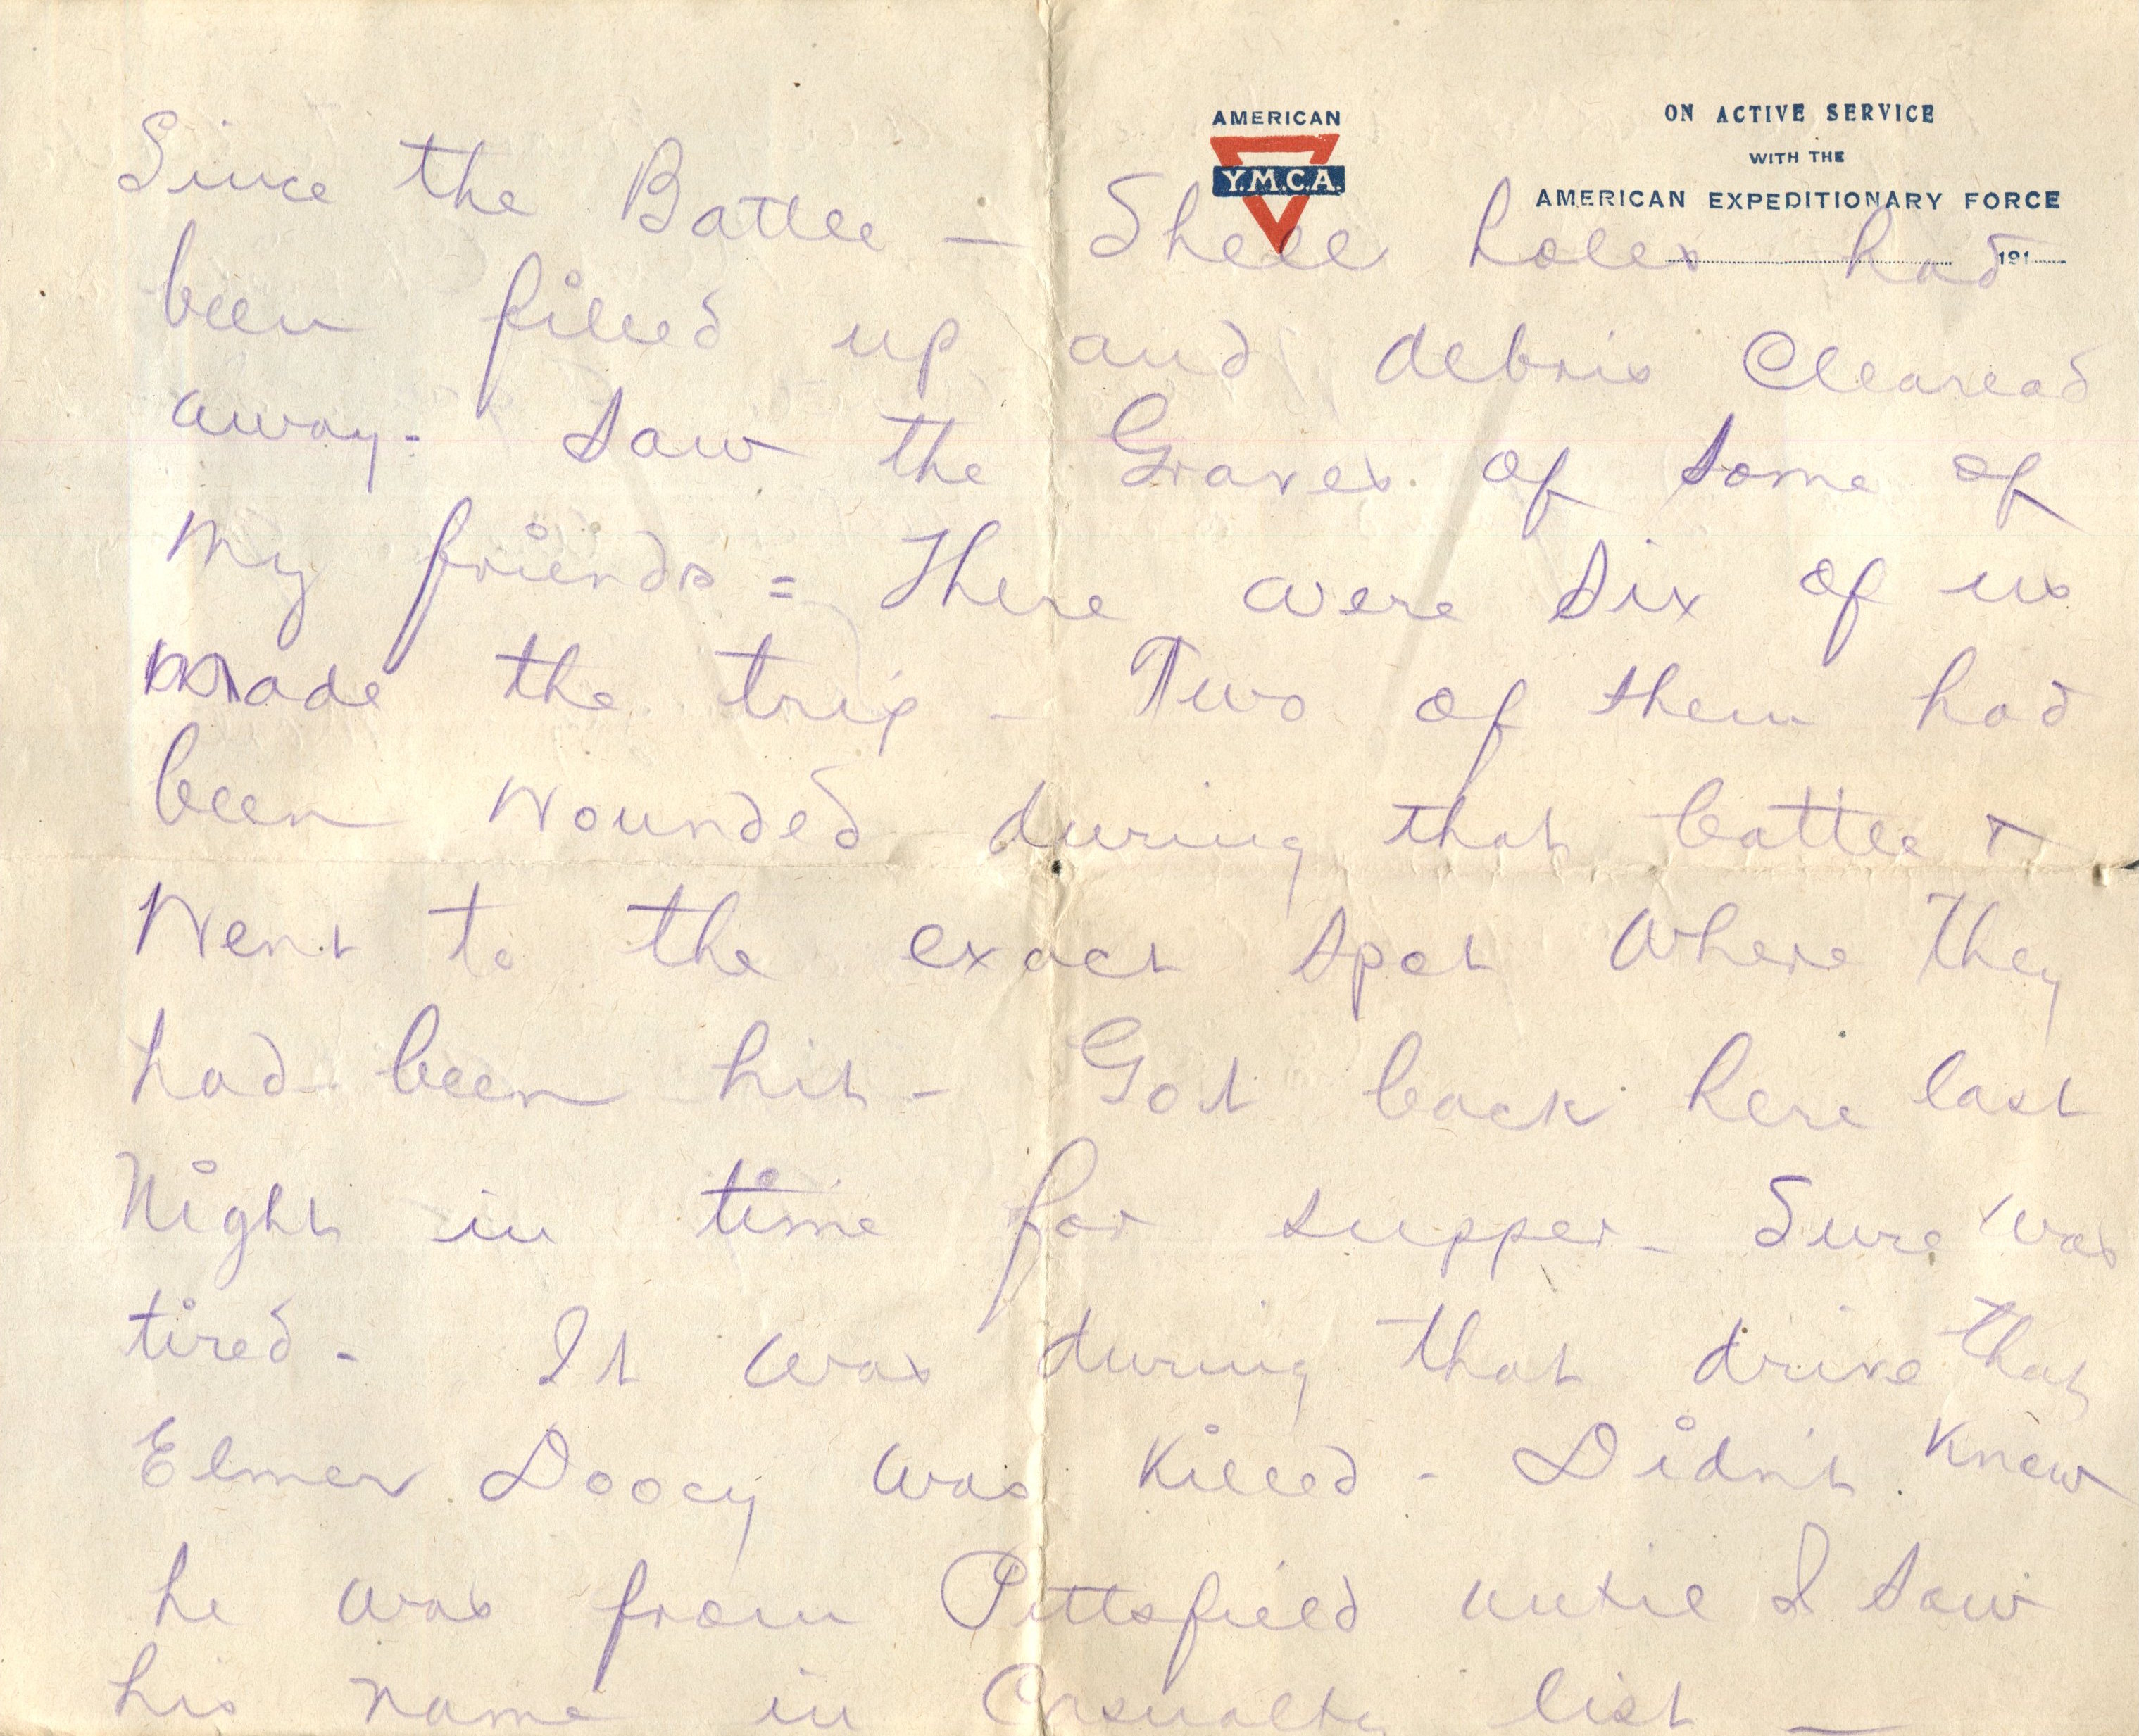 AMERICAN
Y.M.C.A.
ON ACTIVE SERVICE
WITH THE
AMERICAN EXPEDITIONARY FORCE
191
Since the Battle — Shell holes had
been filled up and debris Cleared
away. Saw the Graves of Some of
My friends = There were Six of us
Made the trip - Two of them had
been Wounded during that battle +
Went to the exact Spot Where They
had been hit - Got back here last
Night in time for supper - Sure was
tired - It was during that drive that
Elmer Doocy was Killed - Didn't Know
he was from Pittsfield until I Saw
his Name in Casualty list —